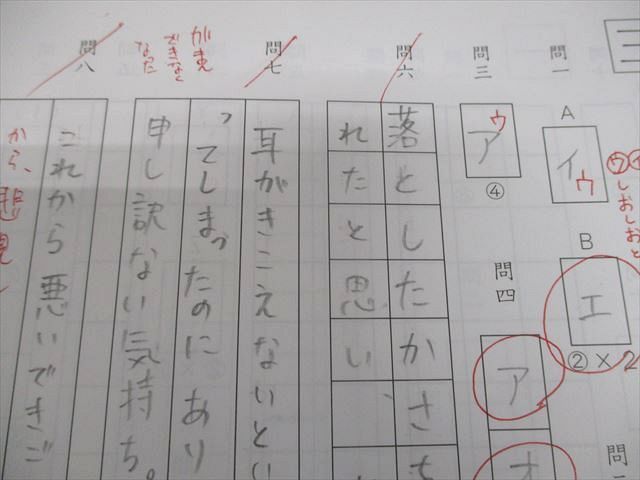 三
問一
A
イ
ウ
しおしおと
B
エ
②×2
問三
ア
ウ
④
問四
ア
オ
問六
落としたかさ
れたと思い
問七
がまえ
できなく
なった
耳がきこえないとい
ってしまったのにあり
申し訳ない気持ち。
問八
これから悪いできご
から、悲観